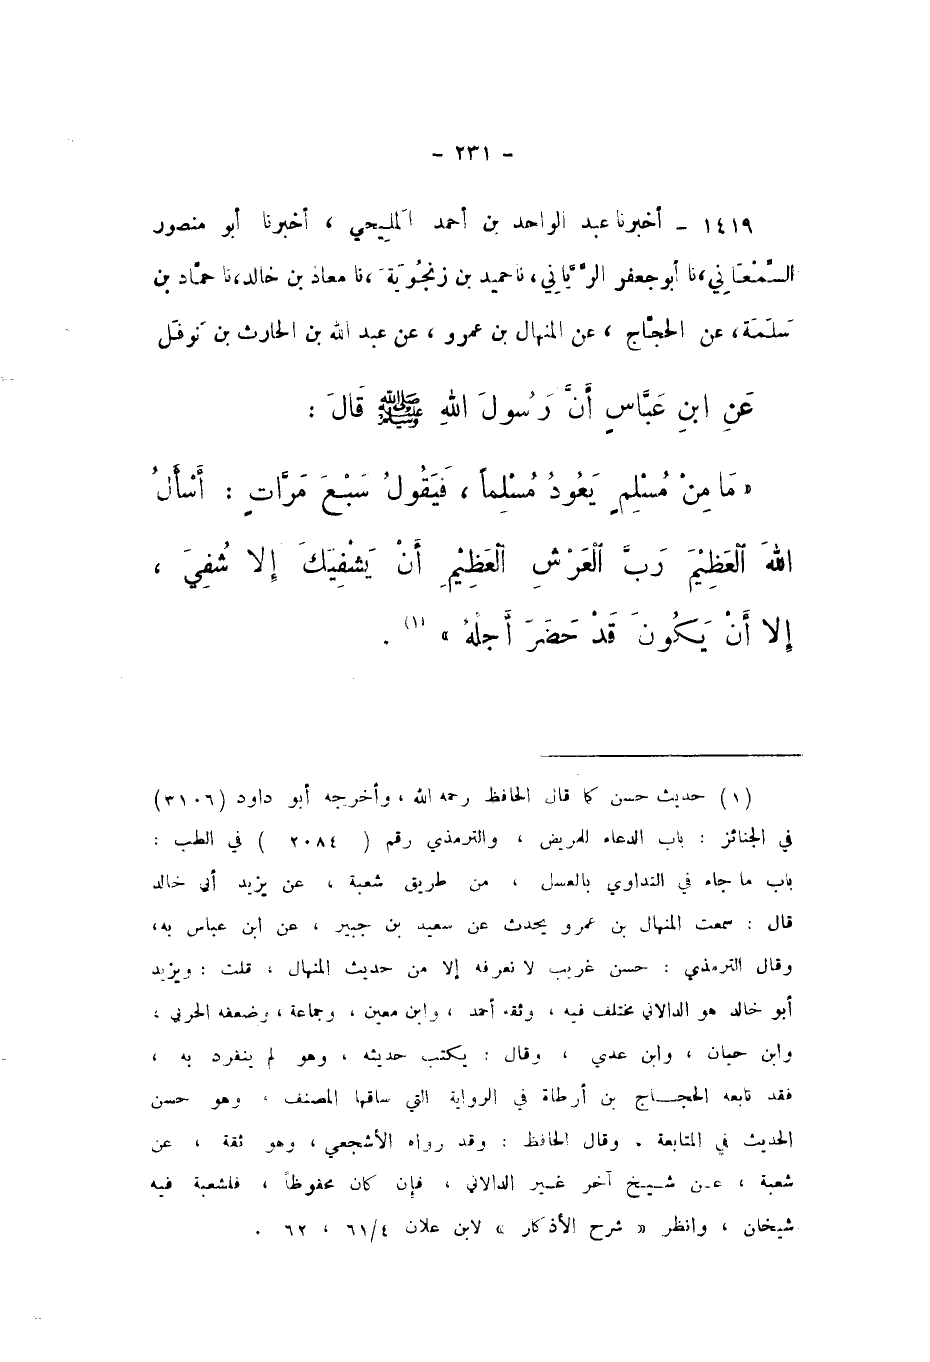 - ٢٣١ -
١٤١٩ - أخبرنا عبد الواحد بن أحمد المليحي ، أخبرنا أبو منصور
السَّمْعَانِي ، نا أبو جعفر الرَّيَّاني ، نا حميد بن زنجُويَةَ ، نا معاذ بن خالد ، نا حمَّاد بن
سَلَمَة ، عن الحجَّاج ، عن المنهال بن عمرو ، عن عبد الله بن الحارث بن نَوفَل
عَنِ ابنِ عَبَّاسٍ أَنَّ رَسُولَ اللهِ ﷺ قَالَ :
« مَا مِنْ مُسْلِمٍ يَعُودُ مُسْلِماً ، فَيَقُولُ سَبْعَ مَرَّاتٍ : أَسْأَلُ
اللهَ العَظِيْمَ رَبَّ العَرْشِ العَظِيْمِ أَنْ يَشْفِيَكَ إِلا شُفِيَ ،
إِلا أَنْ يَكُونَ قَدْ حَضَرَ أَجلُهُ » (١) .
(١) حديث حسن كما قال الحافظ رحمه الله ، وأخرجه أبو داود (٣١٠٦)
في الجنائز : باب الدعاء للمريض ، والترمذي رقم ( ٢٠٨٤ ) في الطب :
باب ما جاء في التداوي بالعسل ، من طريق شعبة ، عن يزيد أبي خالد
قال : سمعت المنهال بن عمرو يحدث عن سعيد بن جبير ، عن ابن عباس به ،
وقال الترمذي : حسن غريب لا نعرفه إلا من حديث المنهال ، قلت : ويزيد
أبو خالد هو الدالاني مختلف فيه ، وثقه أحمد ، وابن معين ، وجماعة ، وضعفه الحربي ،
وابن حبان ، وابن عدي ، وقال : يكتب حديثه ، وهو لم ينفرد به ،
فقد تابعه الحجاج بن أرطاة في الرواية التي ساقها المصنف ، وهو حسن
الحديث في المتابعة . وقال الحافظ : وقد رواه الأشجعي ، وهو ثقة ، عن
شعبة ، عن شيخ آخر غير الدالاني ، فإن كان محفوظاً ، فلشعبة فيه
شيخان ، وانظر « شرح الأذكار » لابن علان ٦١/٤ ، ٦٢ .